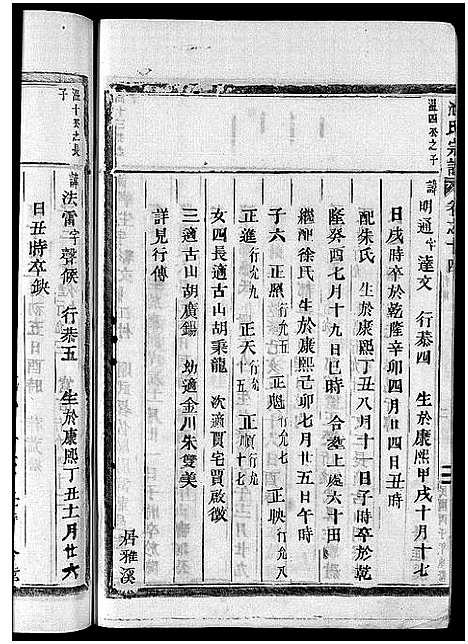 池氏宗譜
溫四公之子
諱明通字達文 行恭四 生於康熙甲戌十月十七
日戌時卒於乾隆辛卯四月廿四日丑時
配朱氏 生於康熙丁丑八月十一日子時卒於乾
隆癸酉七月十九日巳時 合塟上處六十田
繼娶徐氏 生於康熙己卯七月廿五日午時
子六 正照行允三 正魁行允七 正映行允八
正進行允九 正天行允十五 正
女四長適古山胡秉龍 次適賈宅賈啟徵
三適古山胡廣錫 幼適金川朱雙美
詳見行傳
居雅溪
溫十公之長子
諱法雷字聲候 行恭五 生於康熙丁丑十一月廿六
日丑時卒缺